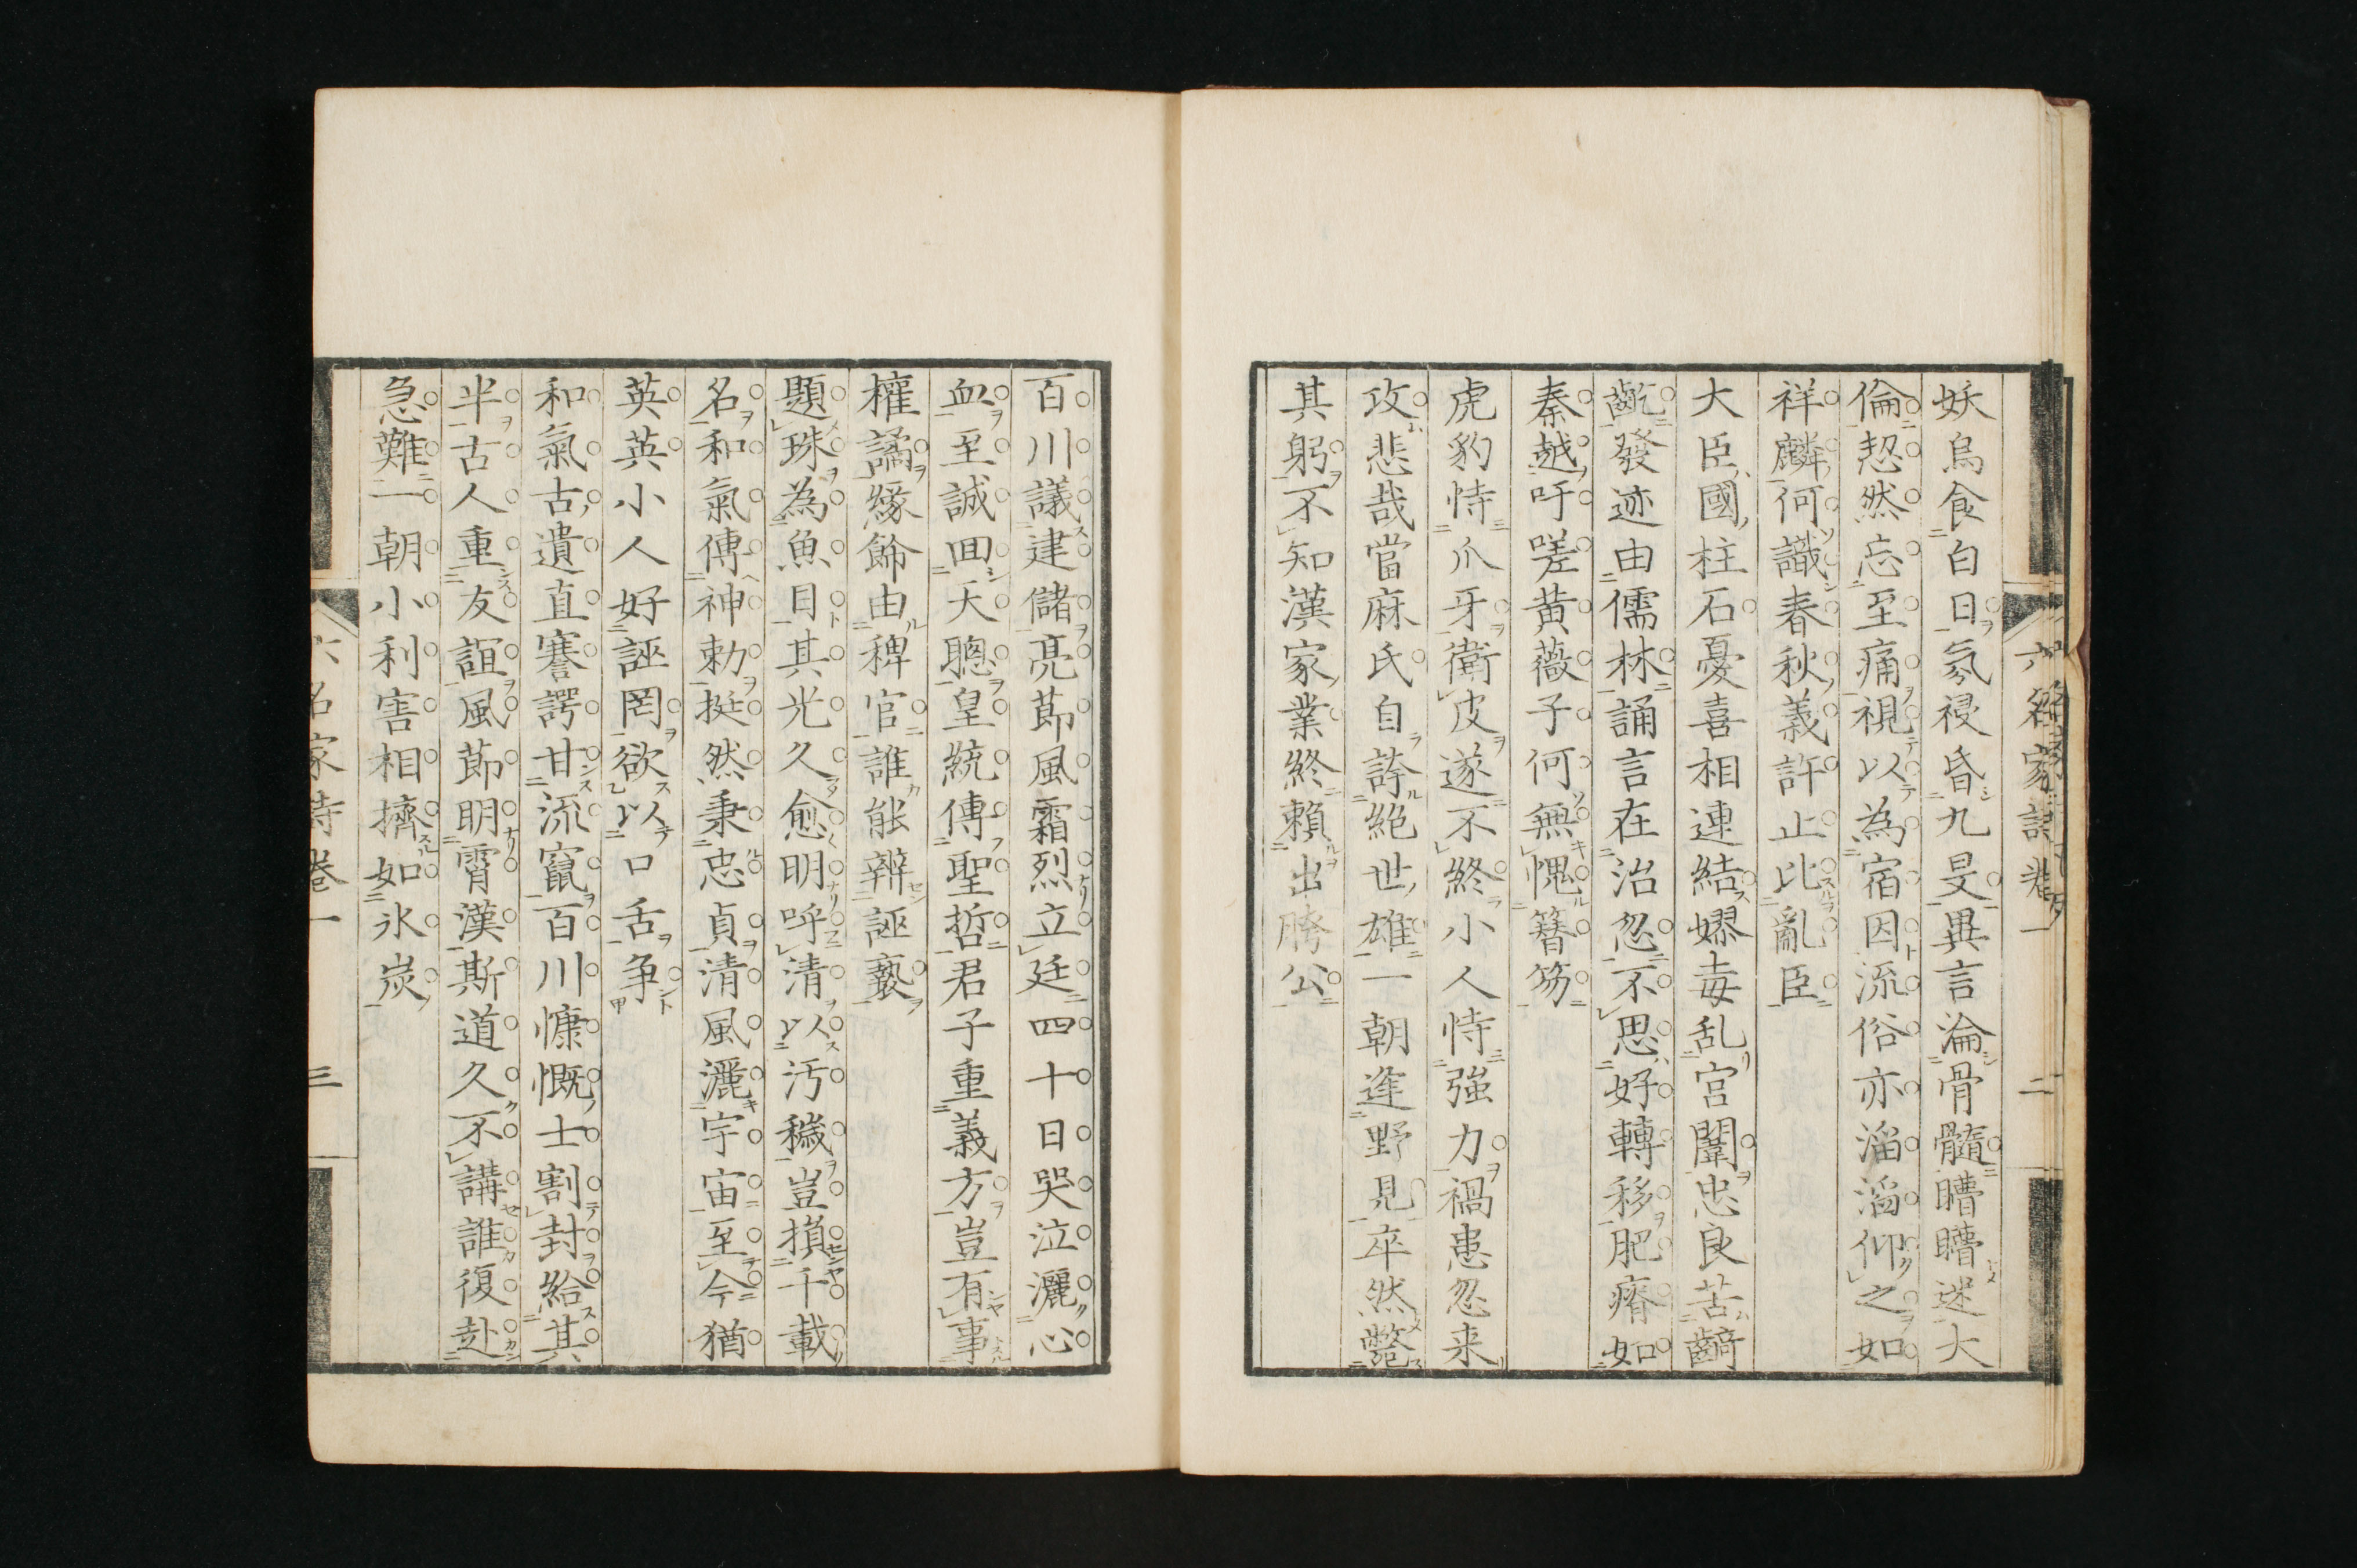 六名家詩卷一
二
妖烏食白日氛祲昏九旻異言淪骨髓瞶瞶迷大
倫恝然忘至痛視以為宿因流俗亦滔滔仰之如
祥麟何識春秋義許止比亂臣
大臣國柱石憂喜相連結嫪毐乱宮闈忠良苦齮
齕發迹由儒林誦言在治忽不思好轉移肥瘠如
秦越吁嗟黄薇子何無愧簪笏
虎豹恃爪牙衛皮遂不終小人恃強力禍患忽来
攻悲哉當麻氏自誇絶世雄一朝逢野見卒然斃
其躬不知漢家業終賴出胯公
百川議建儲亮莭風霜烈立廷四十日哭泣灑心
血至誠回天聰皇統傳聖哲君子重義方豈有事
權譎緣飾由稗官誰能辨誣䙝
題珠為魚目其光久愈明呼清以汚穢豈損千載
名和氣傳神勅挺然秉忠貞清風灑宇宙至今猶
英英小人好誣罔欲以口舌争
和氣古遺直謇諤甘流竄百川慷慨士割封給其
半古人重友誼風莭明霄漢斯道久不講誰復赴
急難一朝小利害相擠如氷炭
六名家詩卷一
三